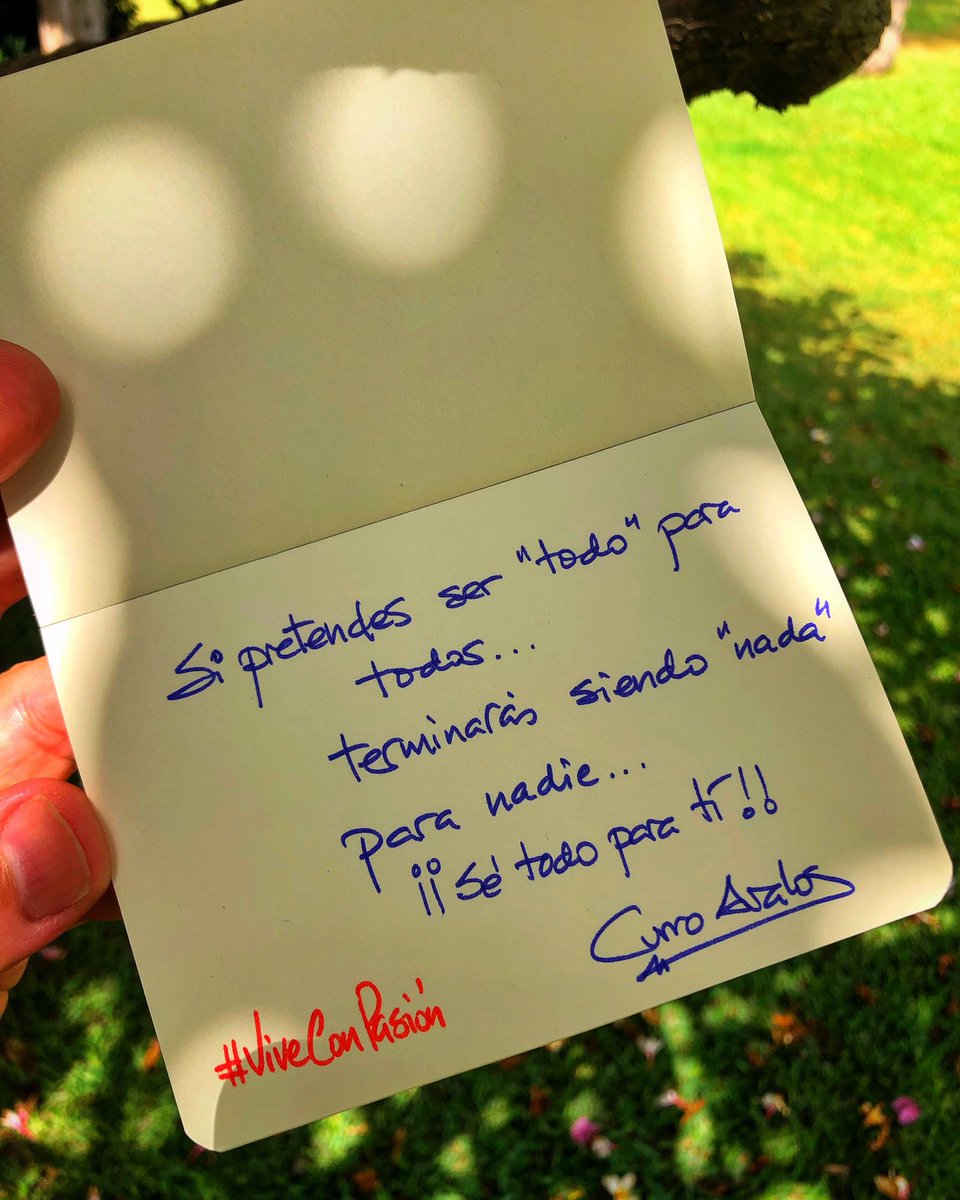 Si pretendes ser "todo" para
todos...
terminarás siendo "nada"
para nadie...
¡¡Sé todo para tí!!
Curro Avalos
#ViveConPasión